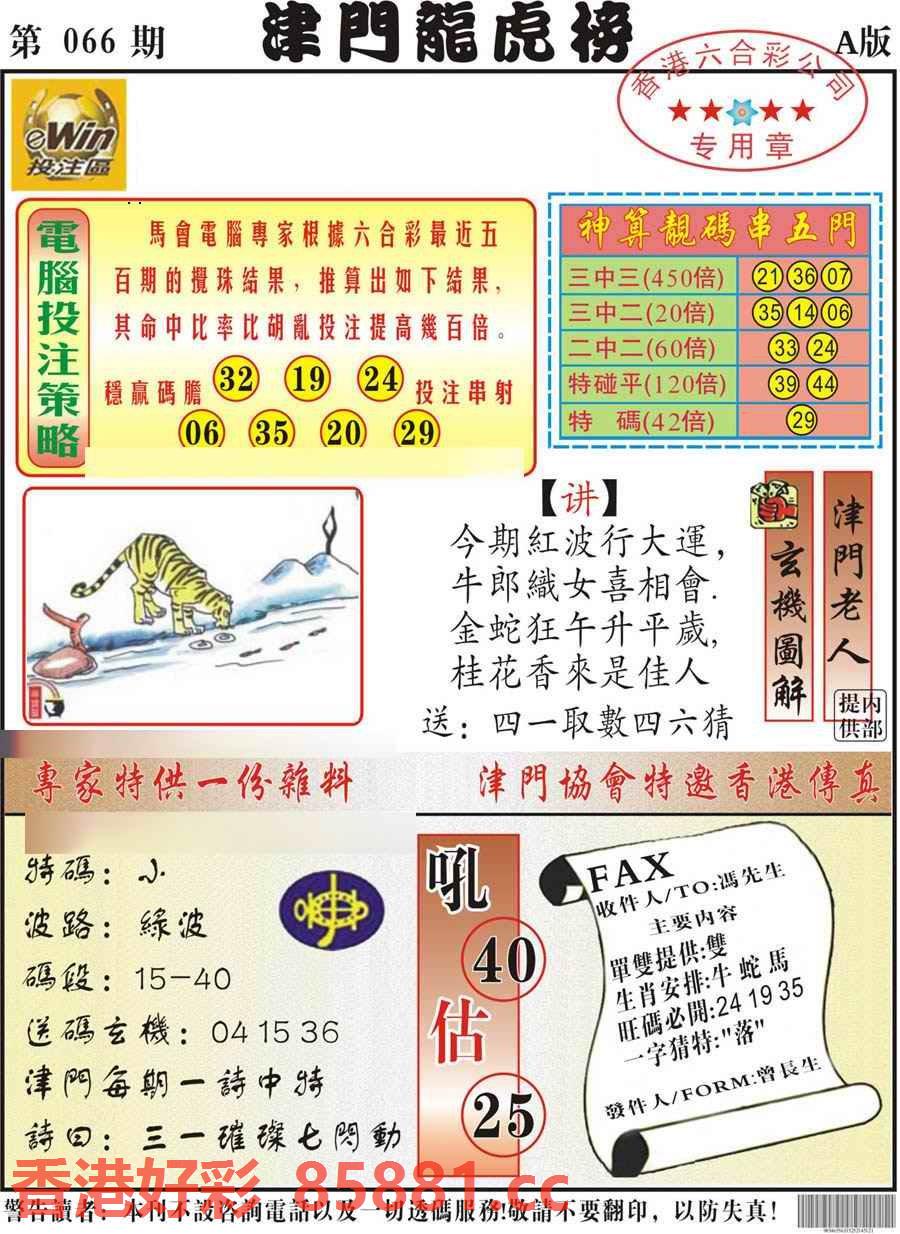 第 066 期
津門龍虎榜
A版
香港六合彩公司
专用章
eWin
投注區
電腦投注策略
馬會電腦專家根據六合彩最近五
百期的攪珠結果，推算出如下結果，
其命中比率比胡亂投注提高幾百倍。
穩贏碼膽 32 19 24 投注串射
06 35 20 29
神算靚碼串五門
三中三(450倍) 21 36 07
三中二(20倍) 35 14 06
二中二(60倍) 33 24
特碰平(120倍) 39 44
特 碼(42倍) 29
【讲】
今期紅波行大運，
牛郎織女喜相會.
金蛇狂午升平歲,
桂花香來是佳人
送：四一取數四六猜
玄機圖解
津門老人
内部提供
專家特供一份雜料
津門協會特邀香港傳真
特碼：小
波路：綠波
碼段：15-40
送碼玄機：04 15 36
津門每期一詩中特
詩曰：三一璀璨七閃動
吼
40
估
25
FAX
收件人/TO:馮先生
主要内容
單雙提供:雙
生肖安排:牛 蛇 馬
旺碼必開:24 19 35
一字猜特:"落"
發件人/FORM:曾長生
香港好彩 85881.cc
警告讀者：本刊不設咨詢電話以及一切透碼服務!敬請不要翻印，以防失真!